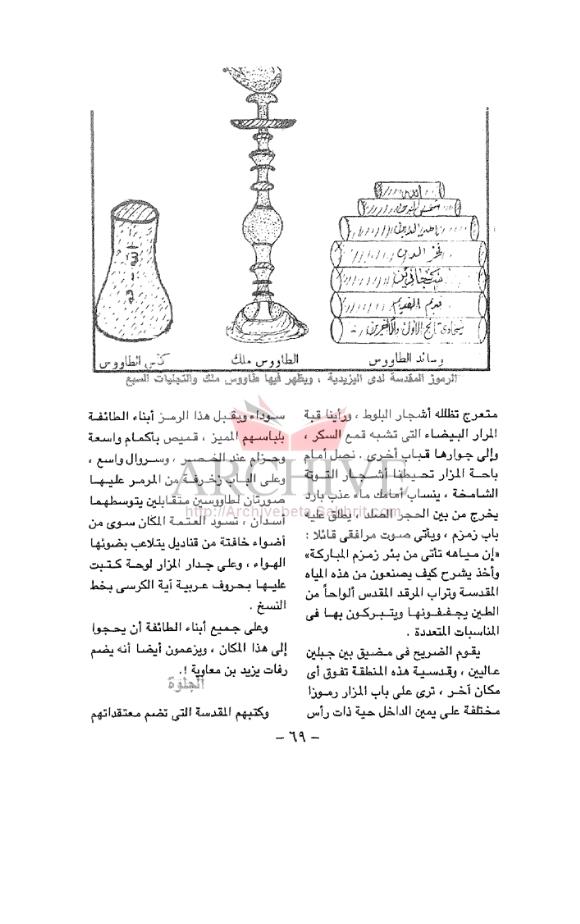 الله
قديم القديم
كأس الطاووس
الطاووس ملك
وسائد الطاووس
الرموز المقدسة لدى اليزيدية ، ويظهر فيها طاووس ملك والتجليات السبع
متعرج تظلله أشجار البلوط ، ورأينا قبة
المزار البيضاء التى تشبه قمع السكر ،
وإلى جوارها قباب أخرى . نصل أمام
باحة المزار تحيطنا أشجار التوتة
الشامخة ، ينساب أمامك ماء عذب بارد
يخرج من بين الحجر الصلد ، يطلق عليه
باب زمزم ، ويأتى صوت مرافقى قائلا :
«إن مياهه تأتى من بئر زمزم المباركة»
وأخذ يشرح كيف يصنعون من هذه المياه
المقدسة وتراب المرقد المقدس ألواحاً من
الطين يجففونها ويتبركون بها فى
المناسبات المتعددة .
يقوم الضريح فى مضيق بين جبلين
عاليين ، وقدسية هذه المنطقة تفوق أى
مكان آخر ، ترى على باب المزار رموزا
مختلفة على يمين الداخل حية ذات رأس
سوداء ويقبل هذا الرمز أبناء الطائفة
بلباسهم المميز ، قميص بأكمام واسعة
وحزام عند الخصر ، وسروال واسع ،
وعلى الباب زخرفة من المرمر عليها
صورتان لطاووسين متقابلين يتوسطهما
أسدان ، تسود العتمة المكان سوى من
أضواء خافتة من قناديل يتلاعب بضوئها
الهواء ، وعلى جدار المزار لوحة كتبت
عليها بحروف عربية آية الكرسى بخط
النسخ .
وعلى جميع أبناء الطائفة أن يحجوا
إلى هذا المكان ، ويزعمون أيضا أنه يضم
رفات يزيد بن معاوية !.
الجلوة
وكتبهم المقدسة التى تضم معتقداتهم
- ٦٩ -
ARCHIVE
http://Archivebeta.Sakhrit.com